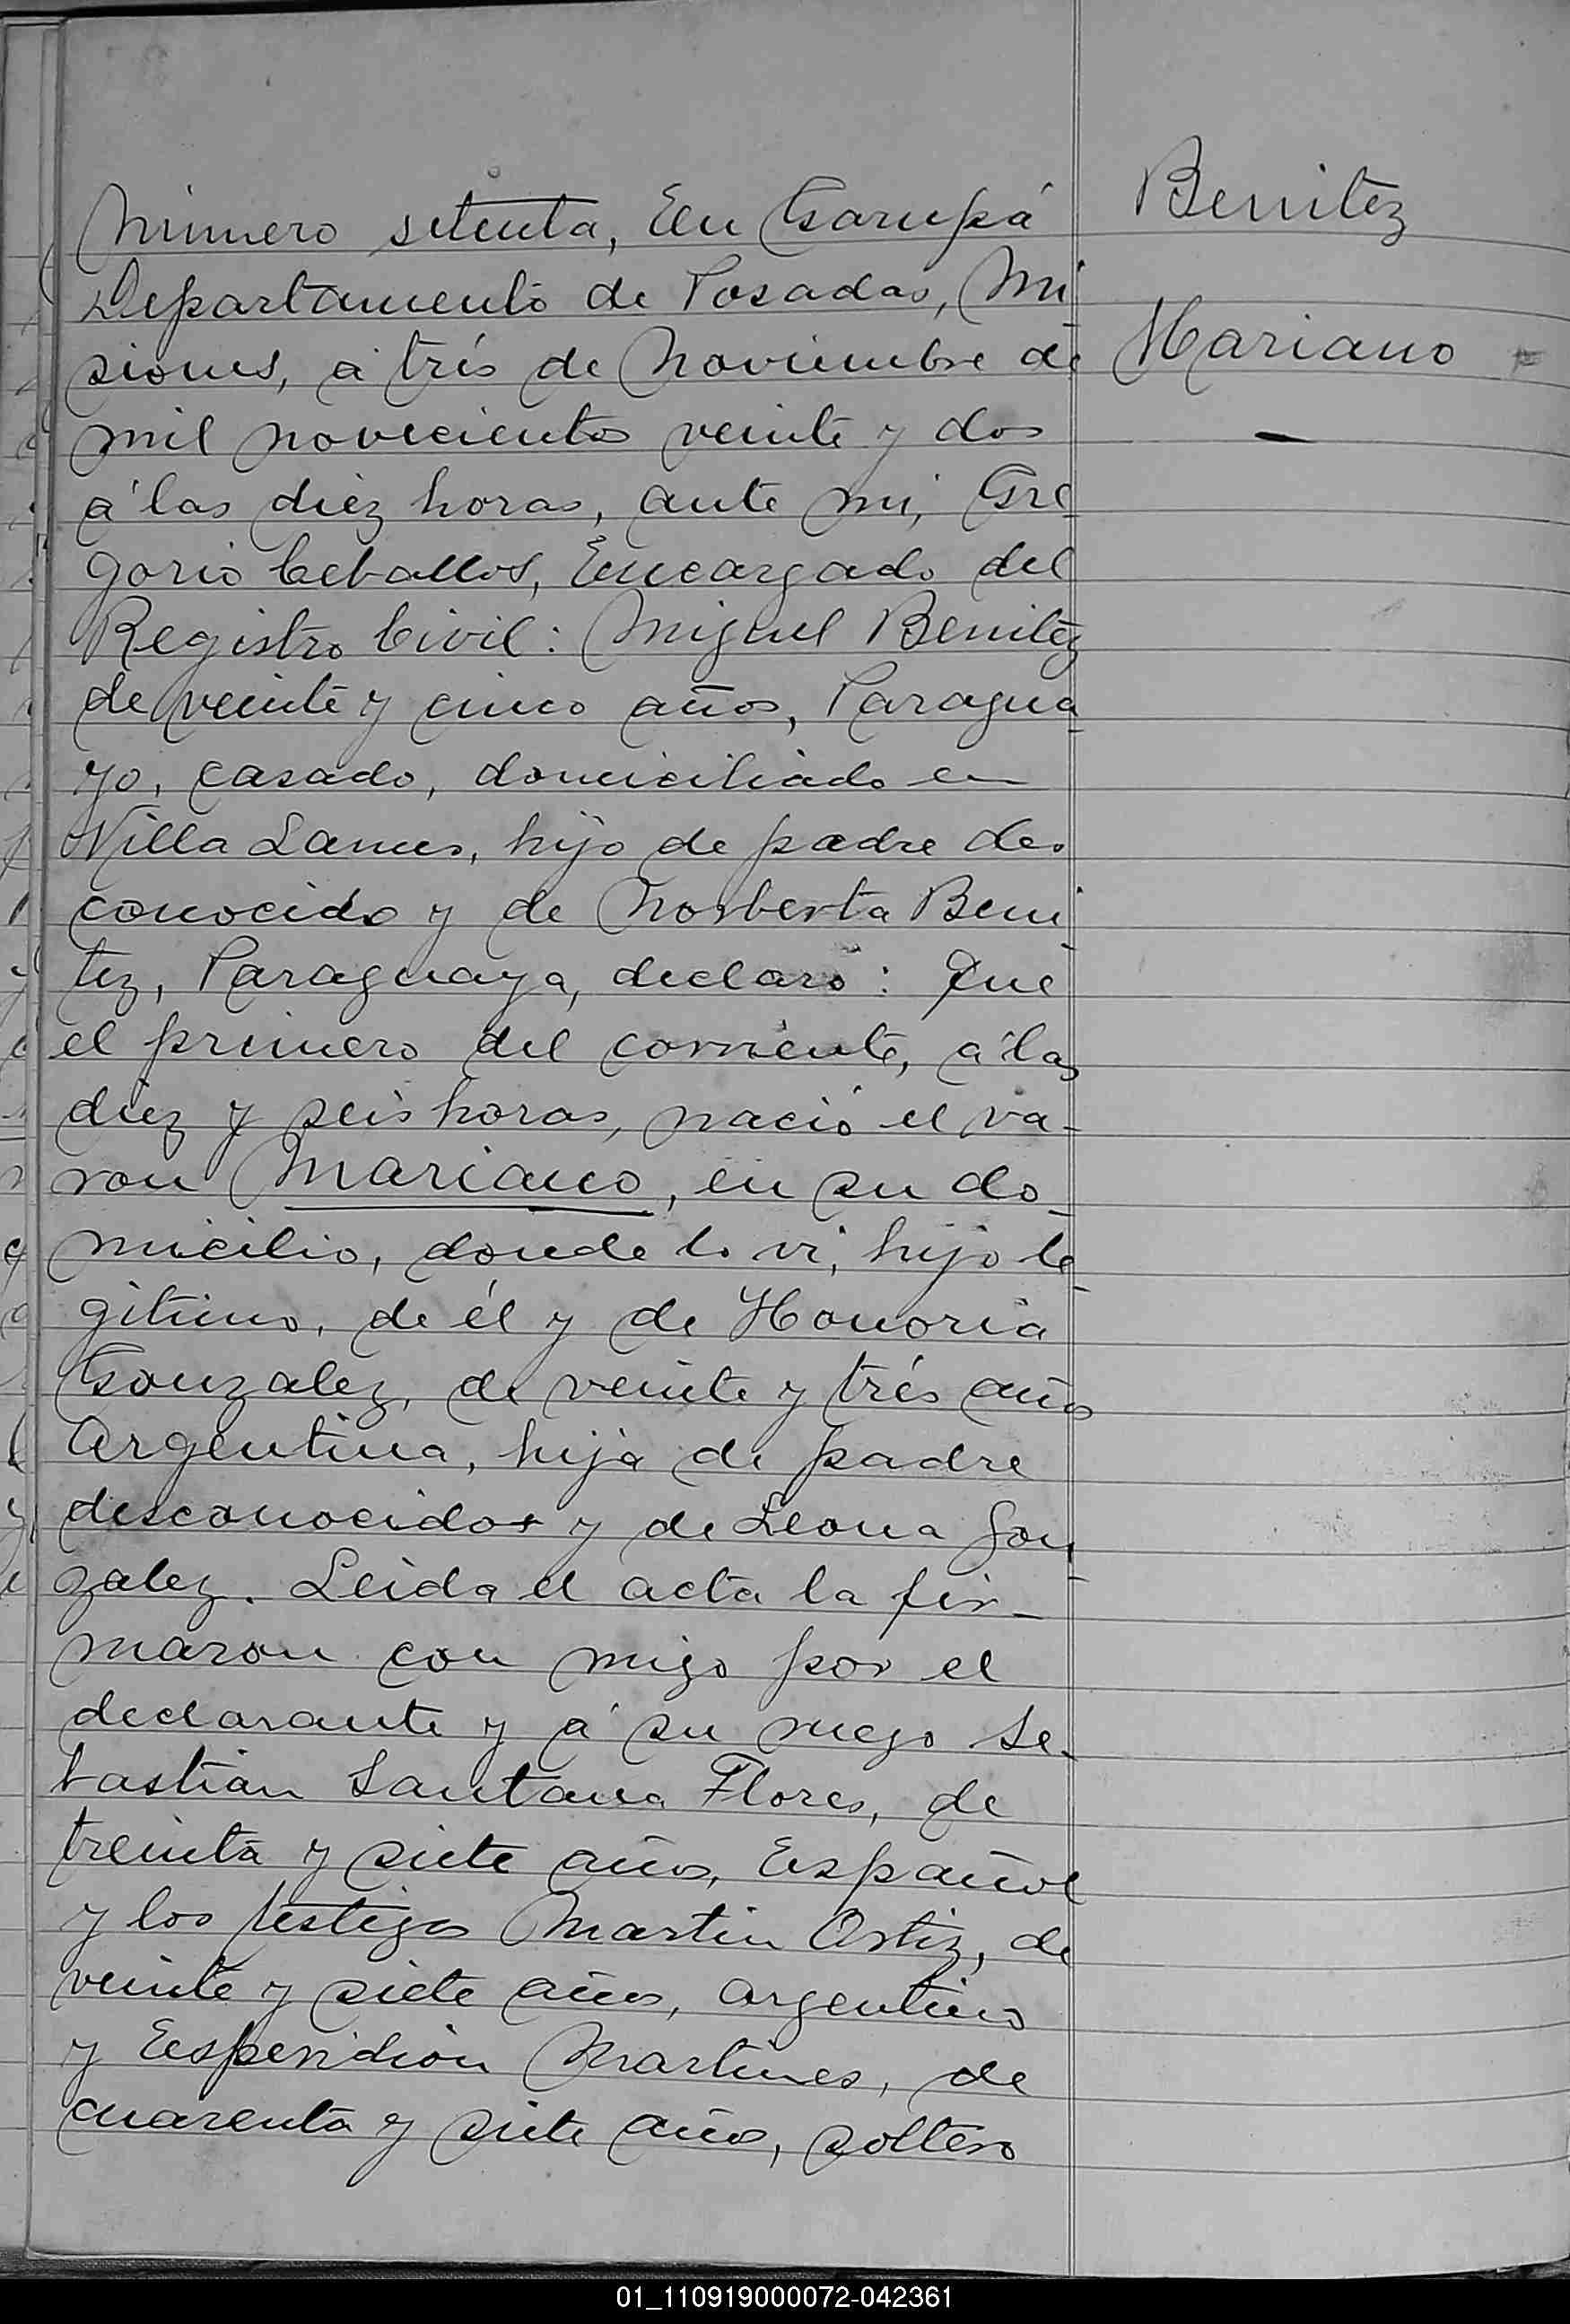 Número setenta, En Garupá
Departamento de Posadas, Mi
siones, á trés de Noviembre de
mil novecientos veinte y dos
á las diez horas, ante mi, Gre
gorio Ceballos, Encargado del
Registro Civil: Miguel Benitez
de veinte y cinco años, Paragua
yo, casado, domiciliado en
Villa Lanus, hijo de padre des
conocido y de Norberta Beni
tez, Paraguaya, declaró: Que
el primero del corriente, á las
diez y seis horas, nació el va-
ron Mariano, en su do
micilio, donde lo vi, hijo le
gitimo, de él y de Honoria
Gonzalez, de veinte y trés años
Argentina, hija de padre
desconocido y de Leona Gon
zalez. Leida el acta la fir-
maron con migo por el
declarante y á su ruego Se-
bastian Santana Flores, de
treinta y siete años, Español
y los testigos Martin Ortiz, de
veinte y siete años, argentino
y Esperidion Martines, de
cuarenta y siete años, soltero
Benitez
Mariano
01_110919000072-042361